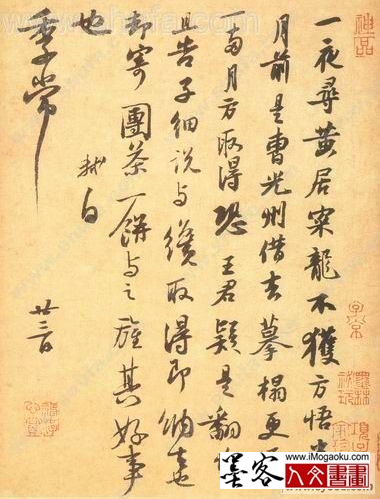 一夜尋黃居寀龍不獲方悟半
月前是曹光州借去摹搨更須
一兩月方取得恐王君疑是翻悔
且告子細說與纔取得即納去也
却寄團茶一餅與之旌其好事
也
軾白
季常
廿三日
神品
子京
墨客
www.iMogaoku.com
人文書畫